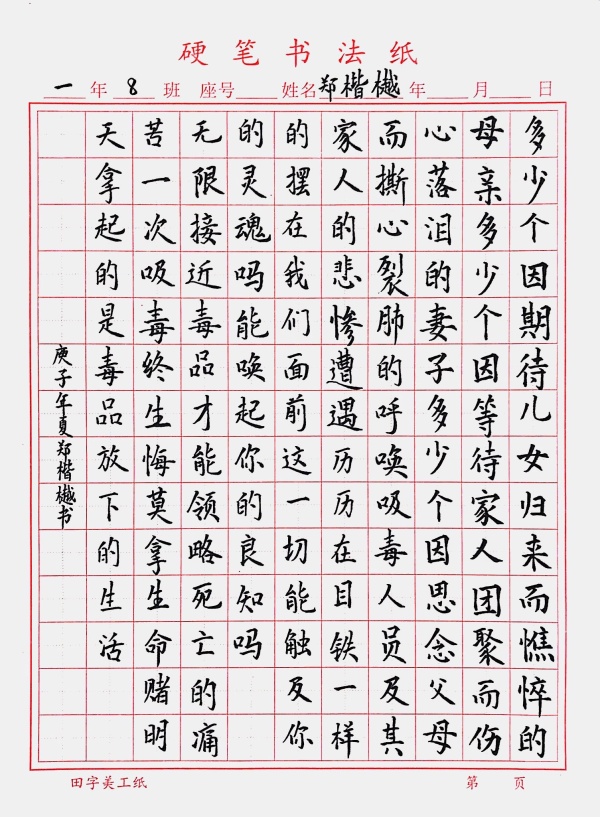 硬笔书法纸
一年8班 座号 姓名郑楷樾 年 月 日
多少个因期待儿女归来而憔悴的
母亲多少个因等待家人团聚而伤
心落泪的妻子多少个因思念父母
而撕心裂肺的呼唤吸毒人员及其
家人的悲惨遭遇历历在目铁一样
的摆在我们面前这一切能触及你
的灵魂吗能唤起你的良知吗
无限接近毒品才能领略死亡的痛
苦一次吸毒终生悔莫拿生命赌明
天拿起的是毒品放下的生活
庚子年夏郑楷樾书
田字美工纸 第 页